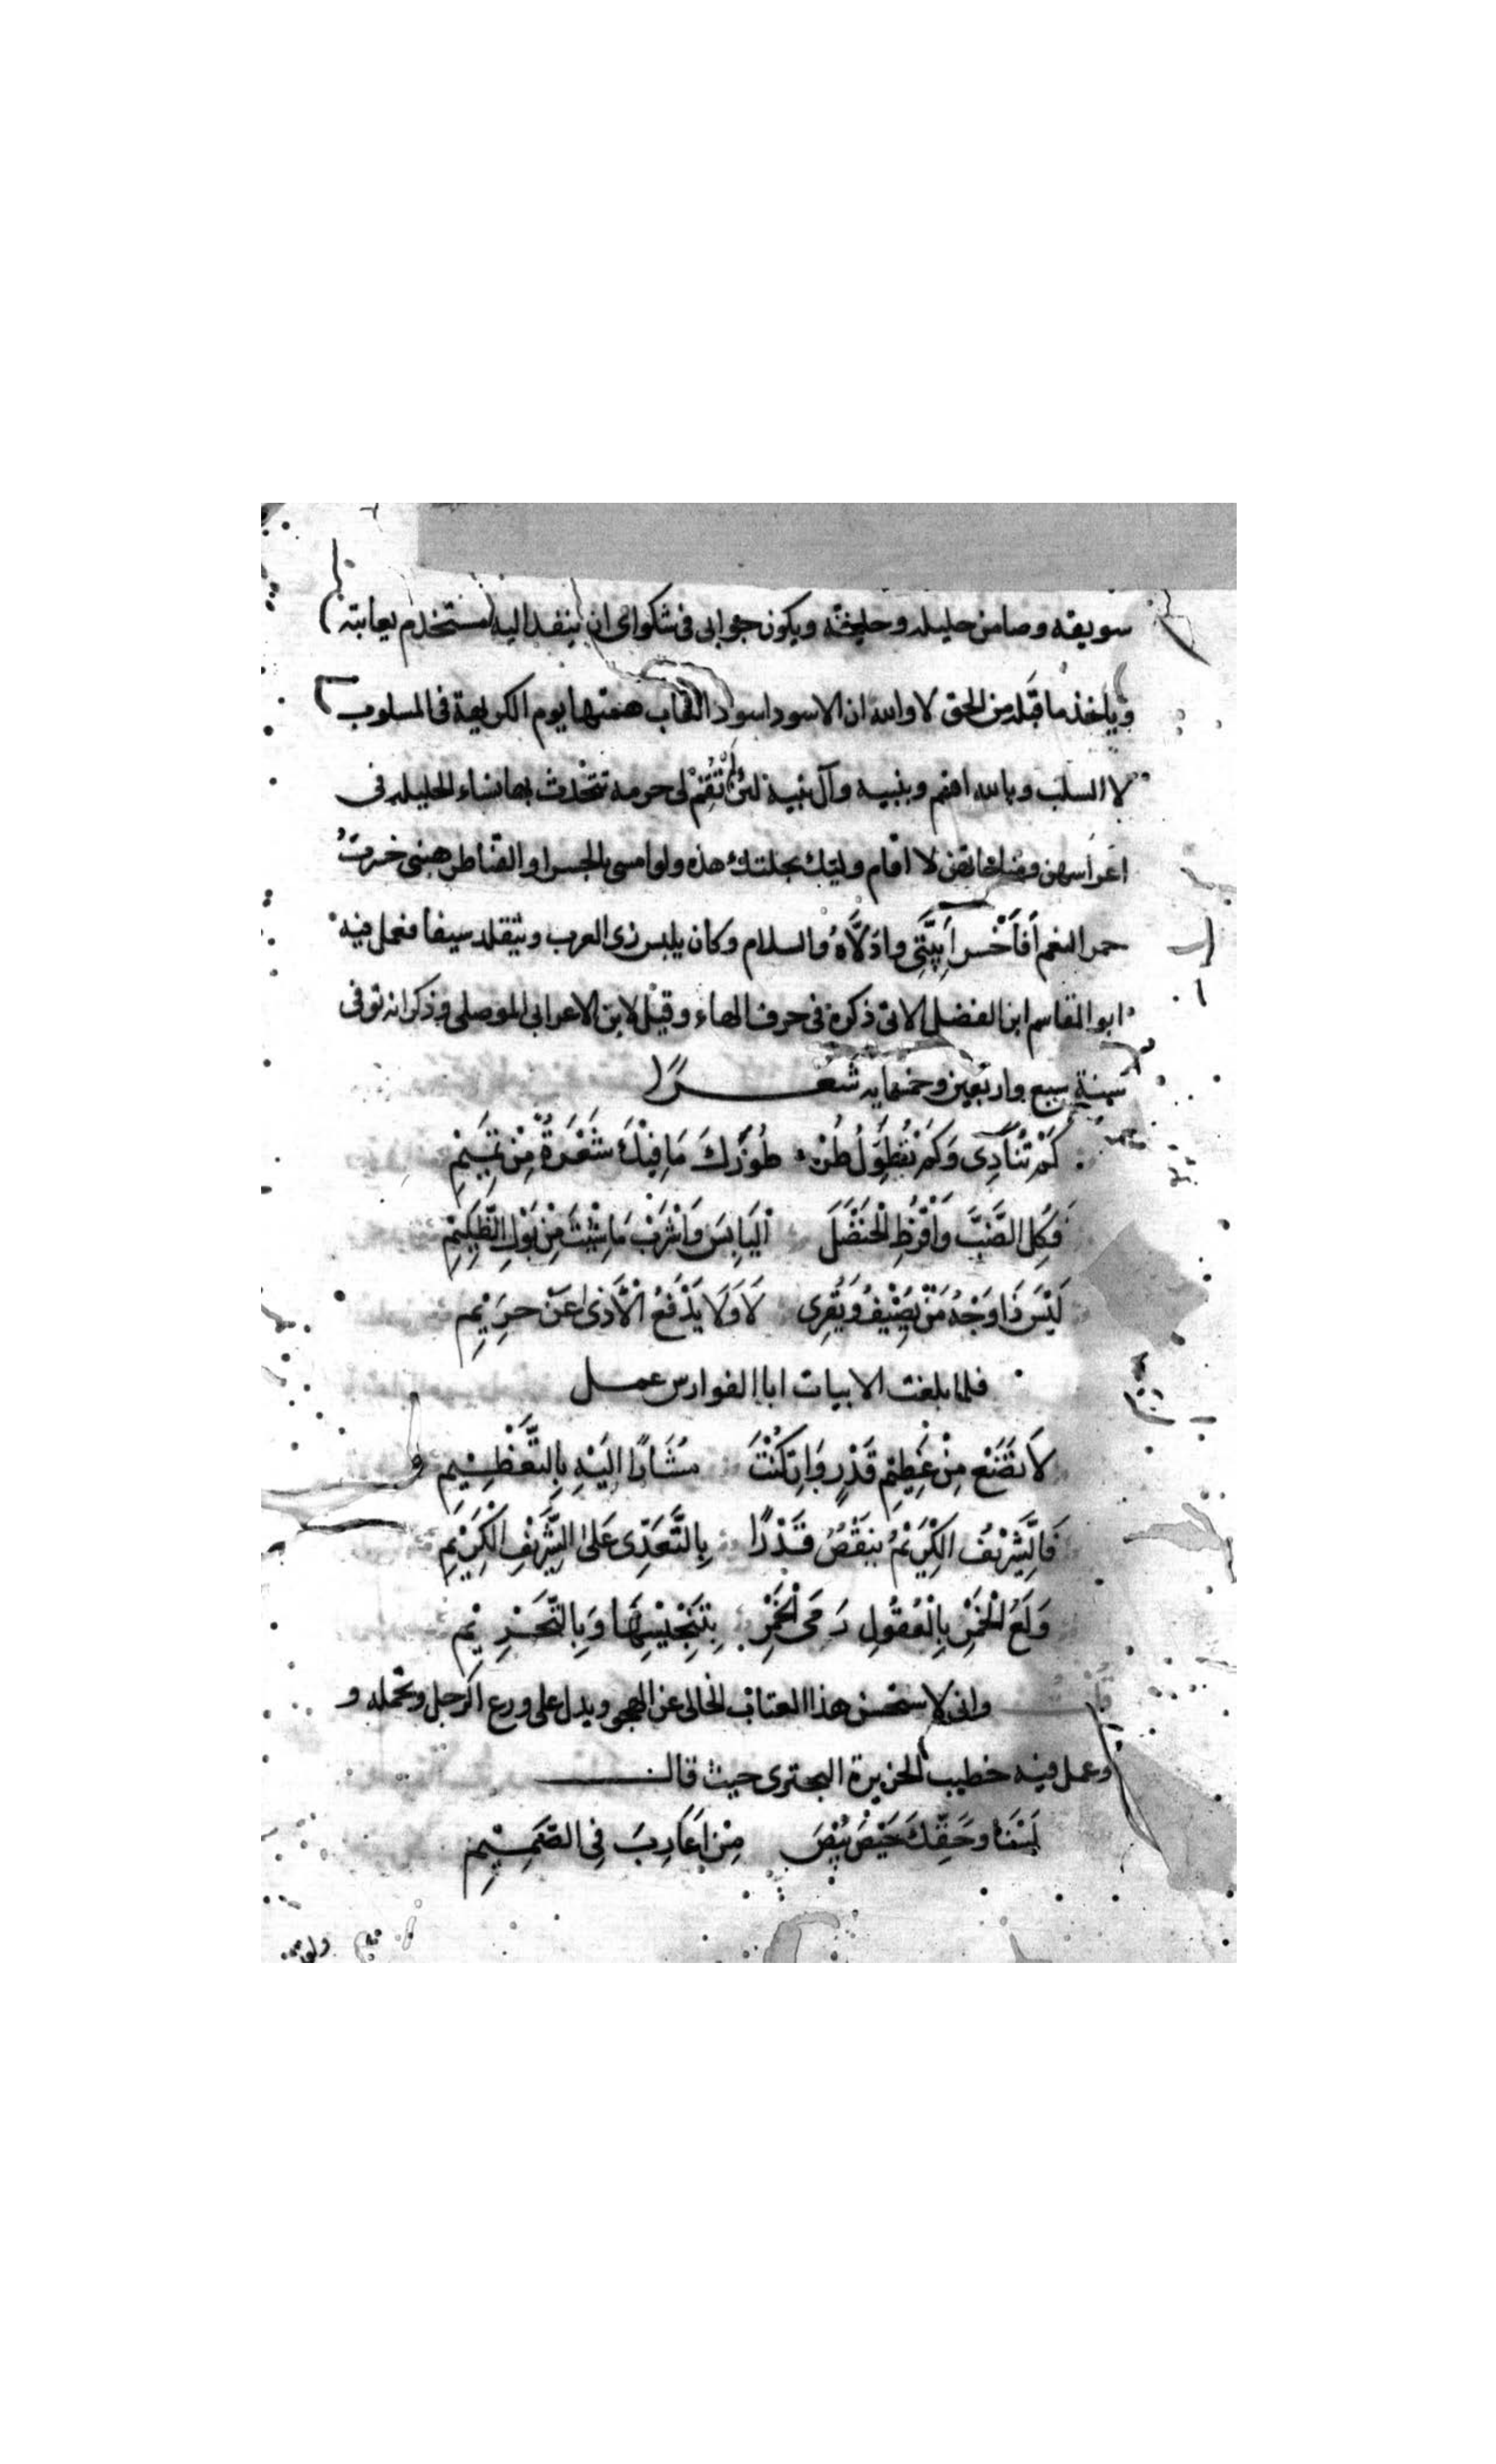 سويقه وضامن حليله وحليفته ويكون جوابى فى شكواى ان ينفد اليه مستخدم يعاتبه
وياخذ ما قبله من الحق لا والله ان الاسود اسود الغاب همتها يوم الكريهة فى المسلوب
لا السلب وبالله اقسم وبنبيه وآل نبيه لئن لم تقم لى حرمة تتحدث بها نساء الحليله فى
اعراسهن ومناحاتهن لا اقام وليك بحلتك هذه ولو امسى بالجسر او القناطر هبنى خسرت
حمر النعم أفأخسر أبيتى واذلاه والسلام وكان يلبس زى العرب ويتقلد سيفا فعمل فيه
ابو القاسم ابن الفضل الاتى ذكره فى حرف الهاء وقيل لابن الاعرابى الموصلى وذكر انه توفى
سنة سبع واربعين وخمسمايه شعـــرا
كَمْ تُنَادِى وَكَمْ تُطَوِّلُ طُرْ طُورَكَ مَا فِيْكَ شَعْرَةٌ مِنْ تَمِيْمِ
فَكُلِ الضَّبَّ وَاقْرُظِ الْحَنْضَلَ الْيَابِسَ وَاشْرَبْ مَا شِئْتَ مِنْ بَوْلِ الظَّلِيْمِ
لَيْسَ ذَا وَجْهُ مَنْ يُضِيْفُ وَيَقْرِى لَا وَلَا يَدْفَعُ الْأَذى عَنْ حَرِيْمِ
فلما بلغت الابيات ابا الفوارس عمـــل
لَا تَضَعْ مِنْ عَظِيْمِ قَدْرٍ وَاِنْ كُنْتَ مُشَارًا اِلَيْهِ بِالتَّعْظِيْمِ
فَالشَّرِيْفُ الْكَرِيْمُ يَنْقُصُ قَدْرًا بِالتَّعَدِّى عَلَى الشَّرِيْفِ الْكَرِيْمِ
وَلَعُ الْخَمْرِ بِالْعُقُولِ رَمَى الْخَمْرَ بِتَنْجِيْسِهَا وَبِالتَّحْرِيْمِ
وانى لاستحسن هذا العتاب الخالى عن الهجو ويدل على ورع الرجل وتحمله و
وعمل فيه خطيب الحزيرة البحترى حيث قالـــ
لَسْنَا وَحَقِّكَ حَيْصَ بَيْصَ مِنْ اَعَارِبَ فِى الصَّمِيْمِ